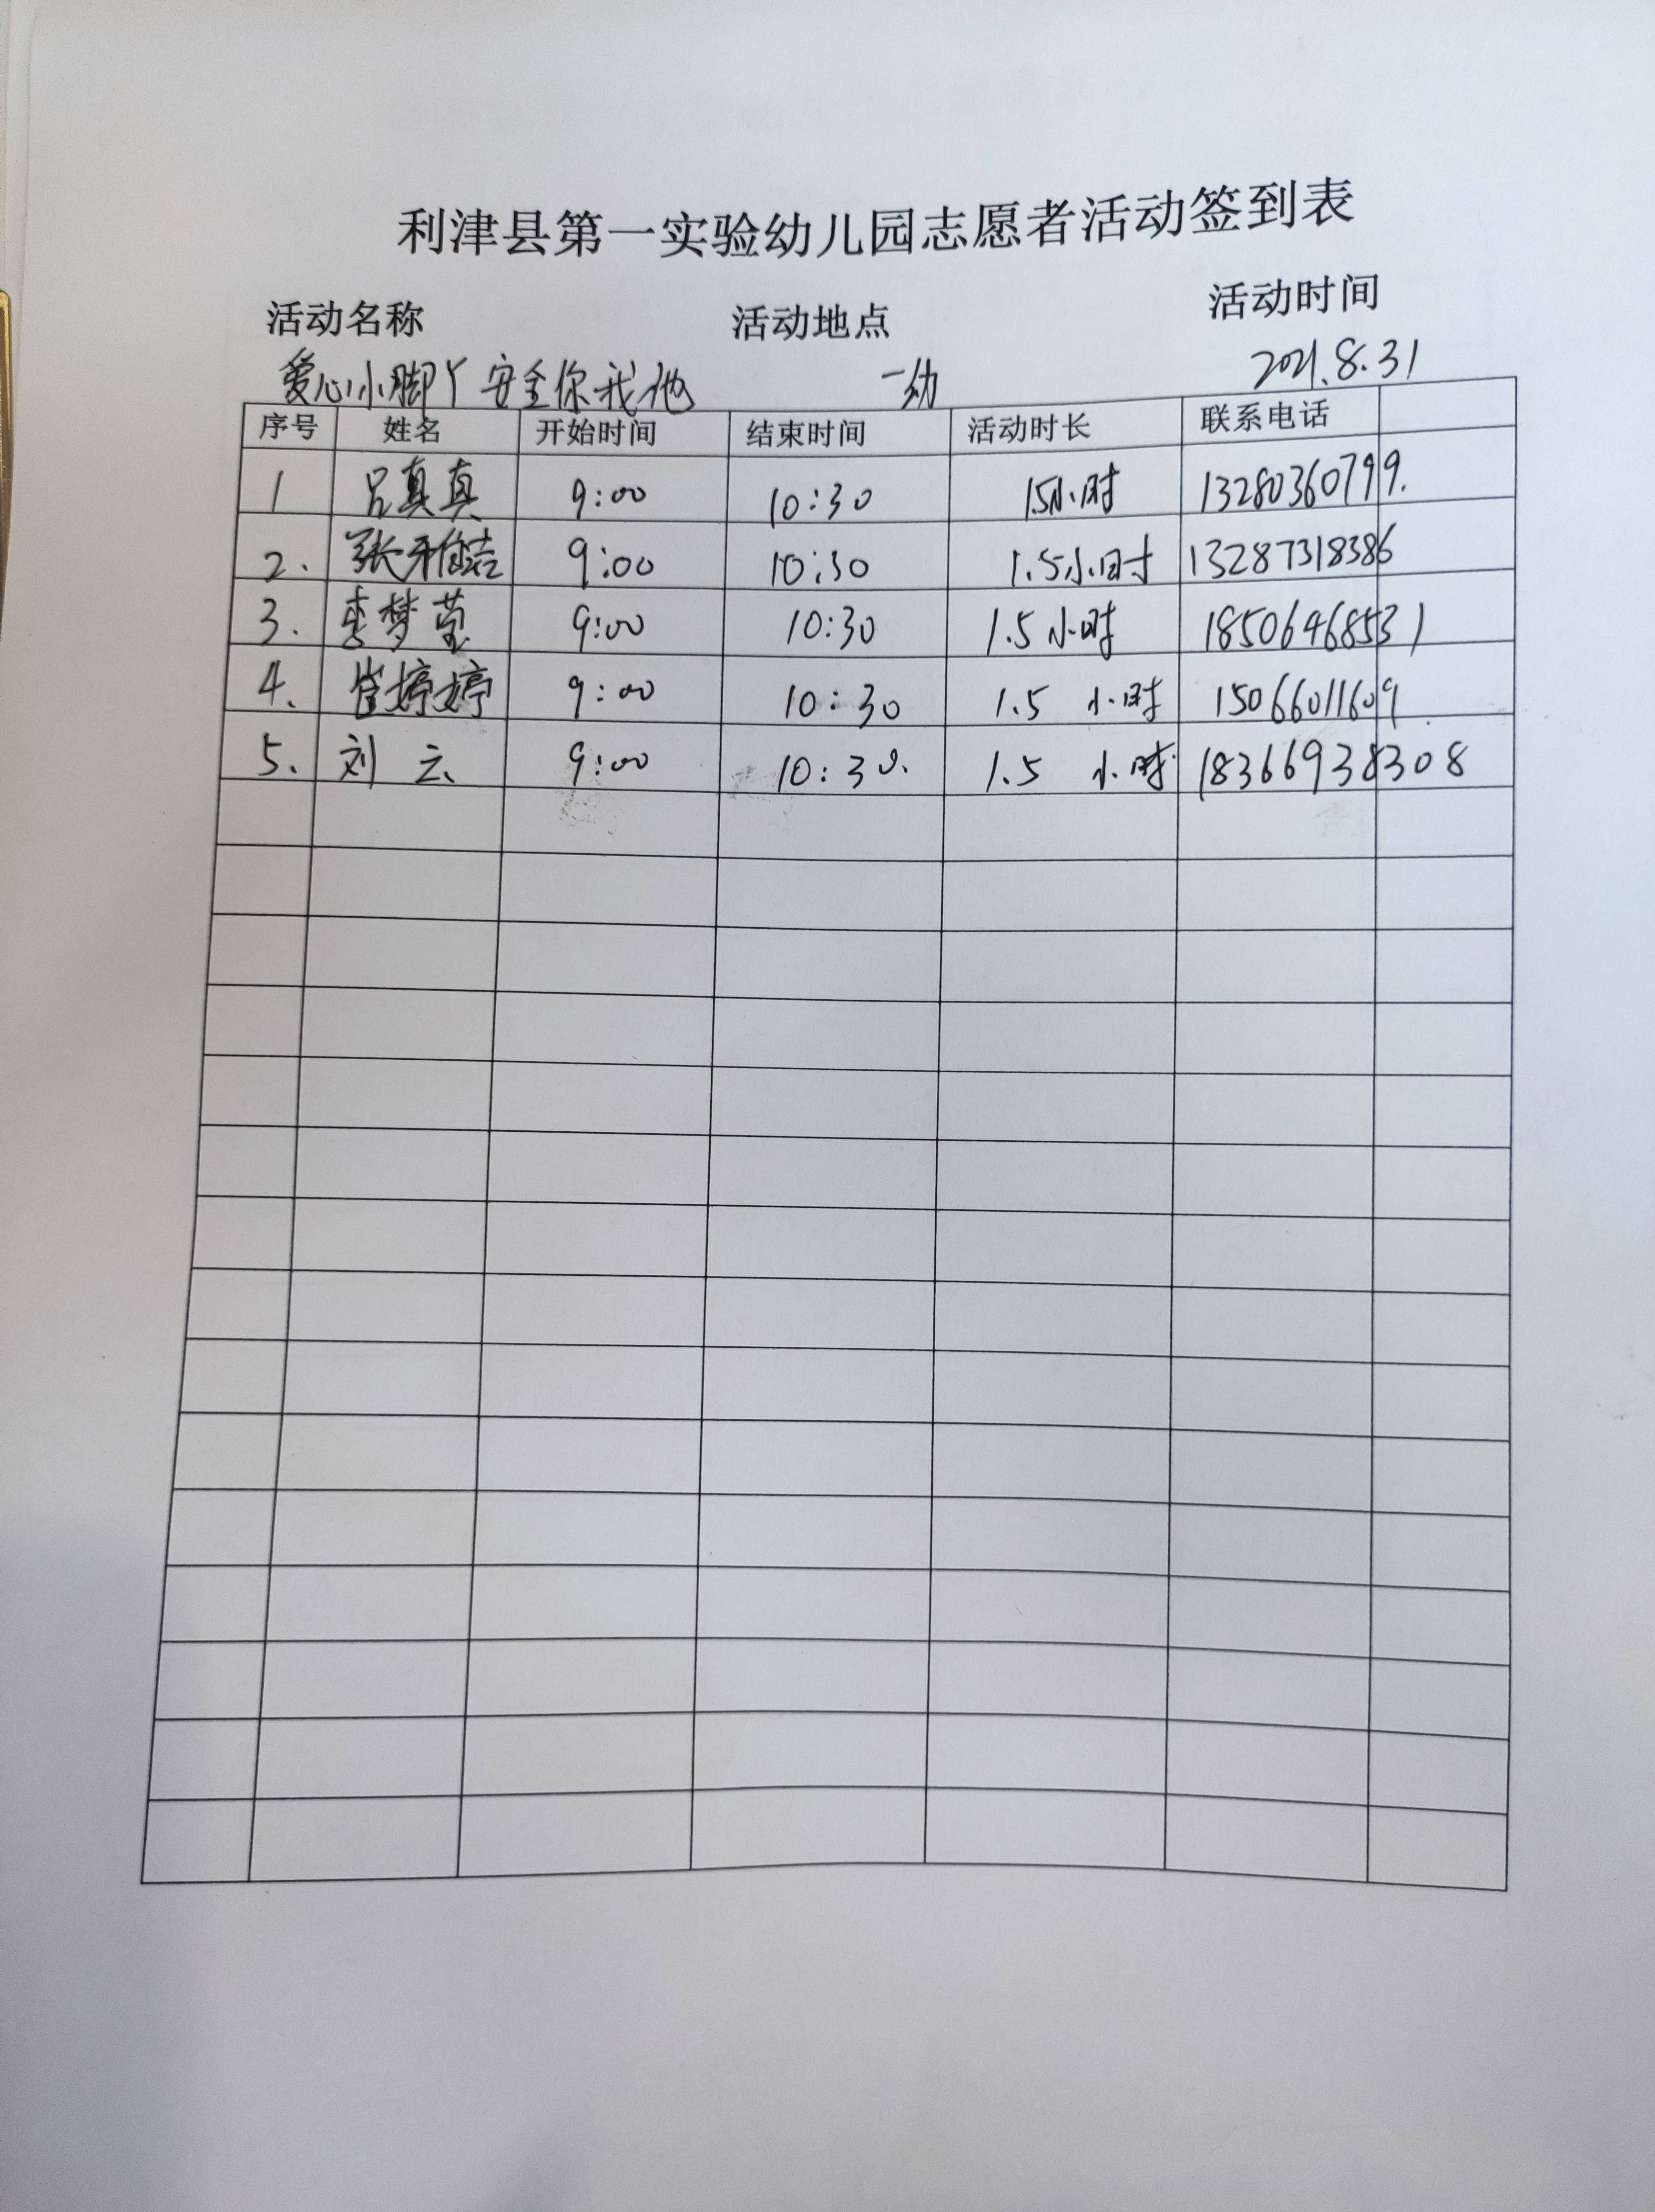 利津县第一实验幼儿园志愿者活动签到表
活动名称 活动地点 活动时间
爱心小脚丫 安全你我他 一幼 2021.8.31
序号 姓名 开始时间 结束时间 活动时长 联系电话
1 吕真真 9:00 10:30 1.5小时 13280360799.
2. 张雅洁 9:00 10:30 1.5小时 13287318386
3. 李梦莹 9:00 10:30 1.5小时 18506468531
4. 崔婷婷 9:00 10:30 1.5 小时 15066011609
5. 刘云 9:00 10:30. 1.5 小时 18366938308